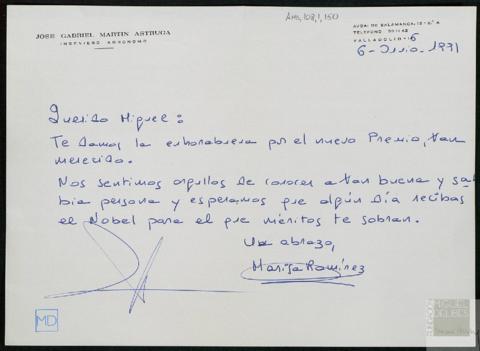 AMD, 103, 1, 150
JOSE GABRIEL MARTIN ASTRUGA
INGENIERO AGRONOMO
AVDA. DE SALAMANCA, 12 - 6.º A
TELEFONO
VALLADOLID-6
6-Junio-1991
Querido Miguel:
Te damos la enhorabuena por el nuevo Premio, tan
merecido.
Nos sentimos orgullos de conocer a tan buena y sa-
bia persona y esperamos que algún día recibas
el Nobel para el que méritos te sobran.
Un abrazo,
Marisa Ramírez
MD
FUNDACIÓN
MIGUEL
DELIBES